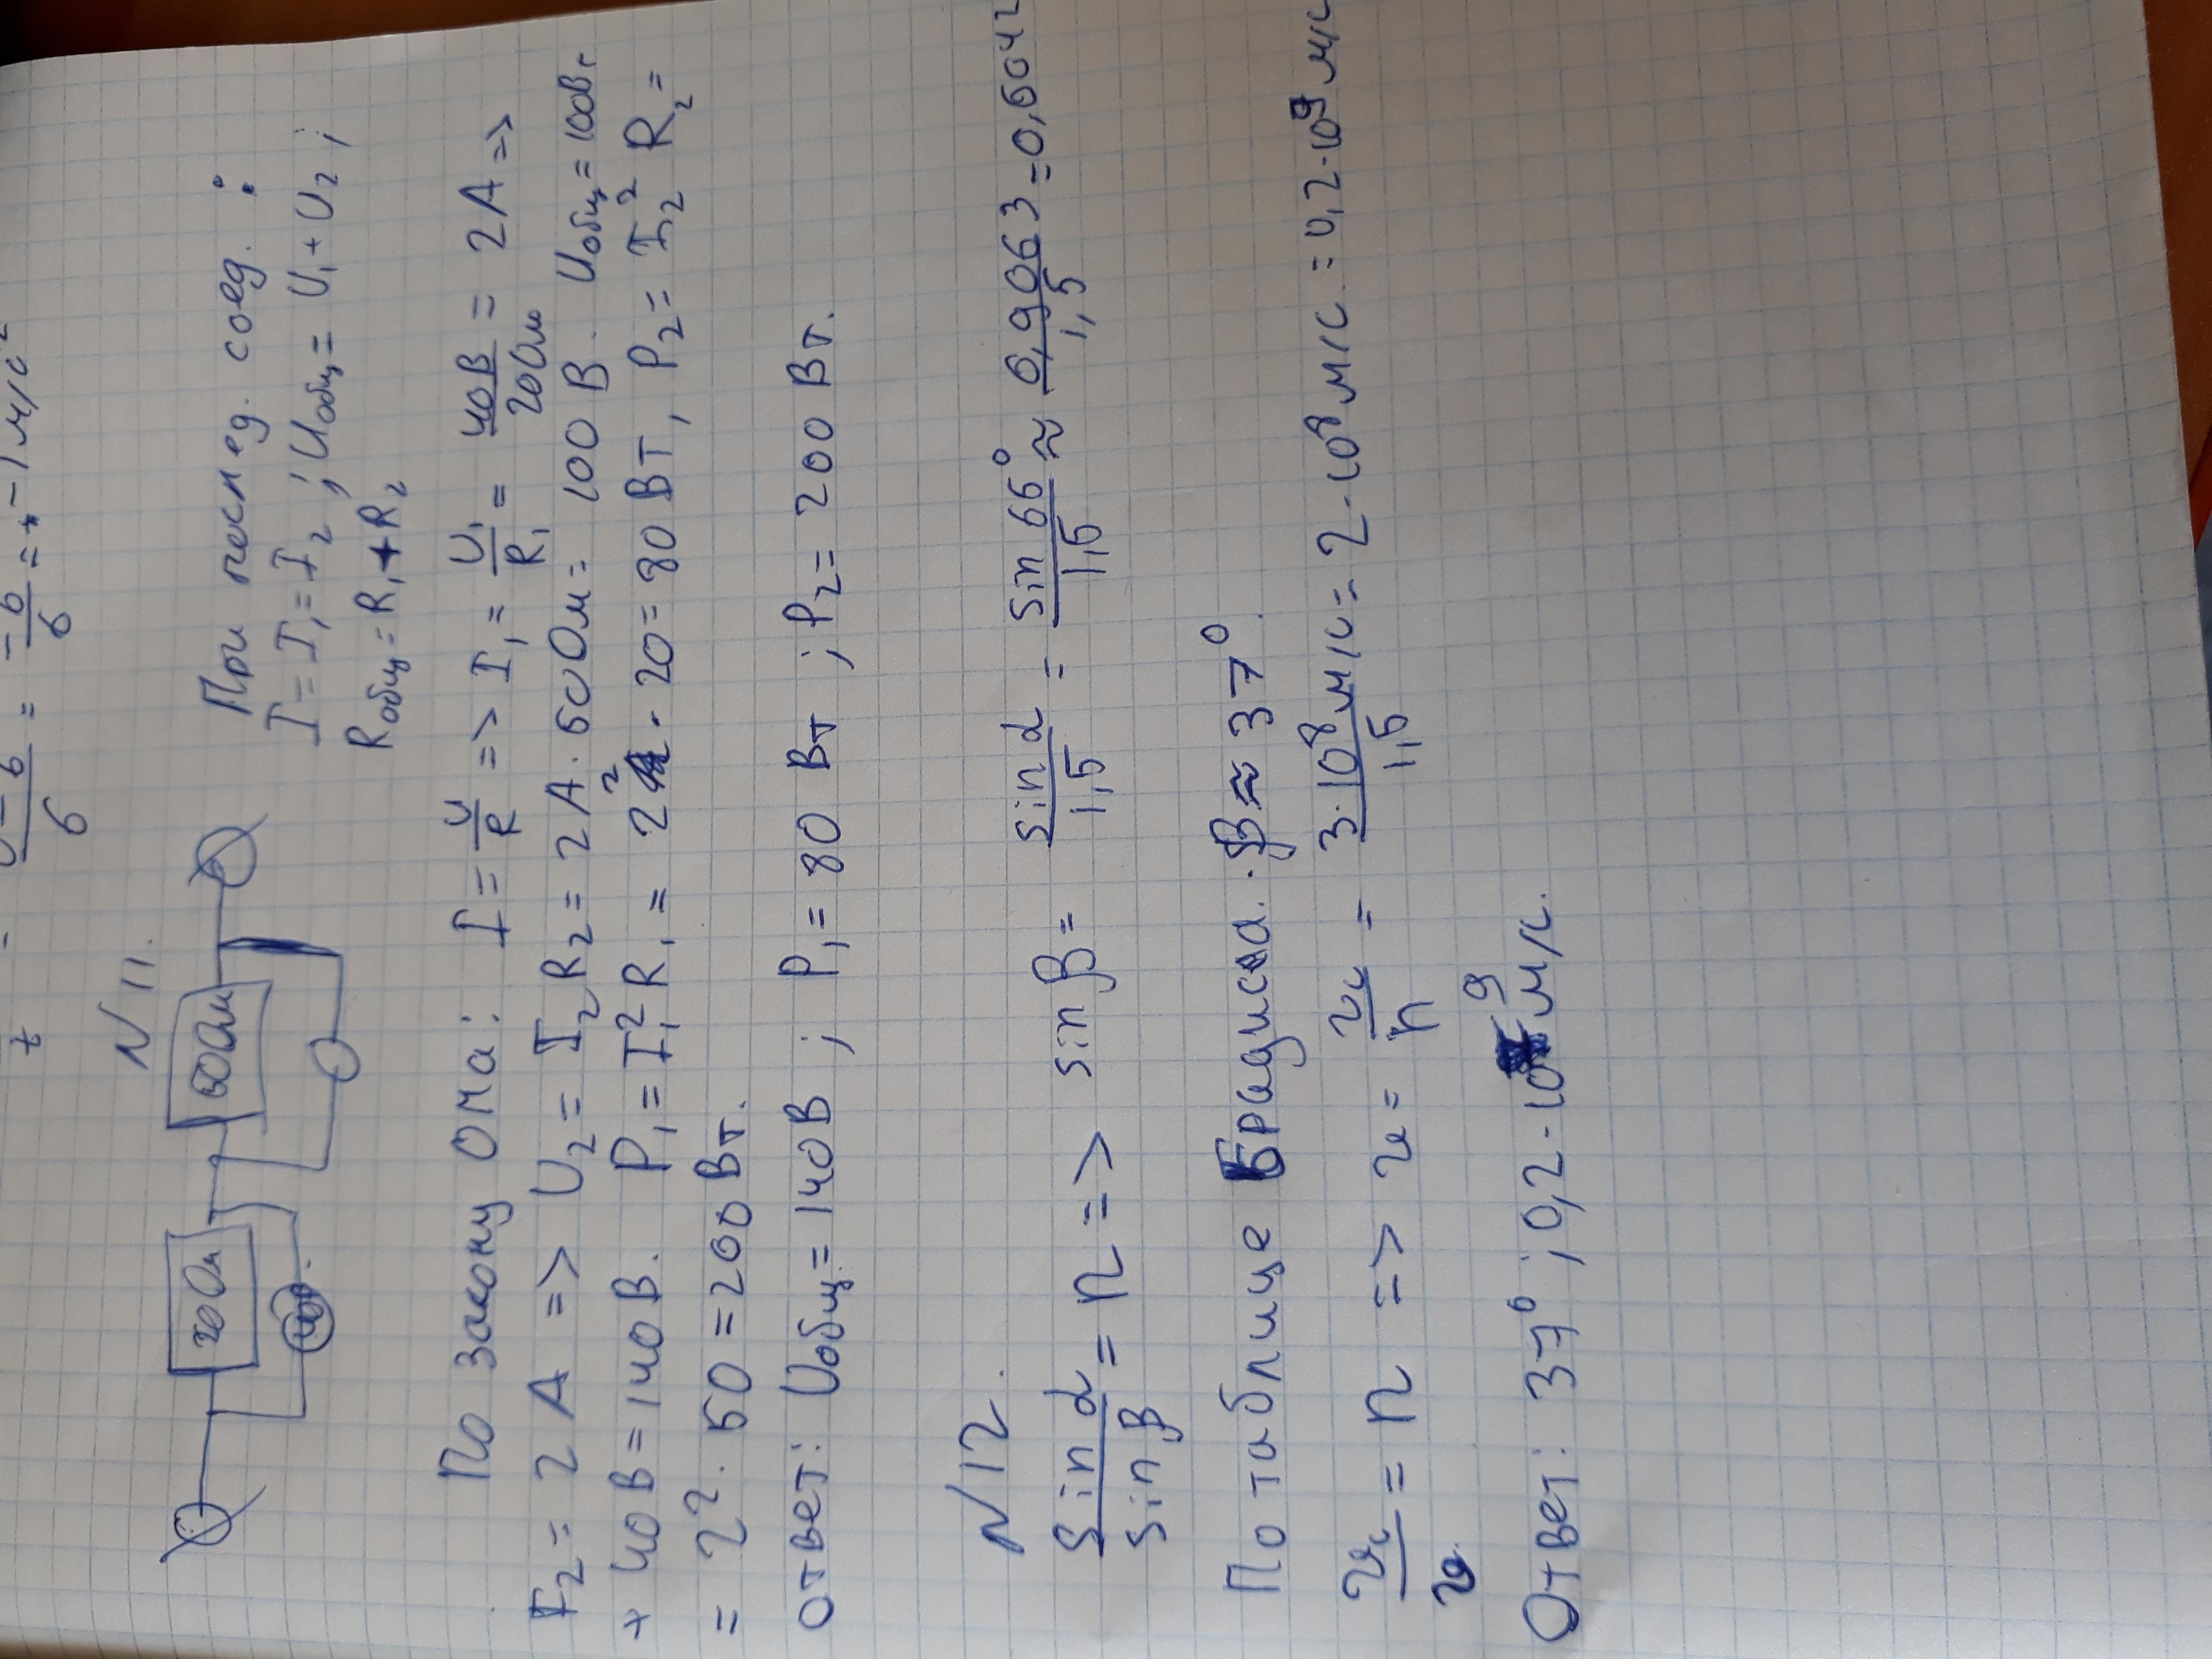 = -6/6 = -1 м/с²
t 6
N 11.
20 Ом 50 Ом
40В
При послед. соед. :
I = I₁ = I₂ ; Uобщ = U₁ + U₂ ;
Rобщ = R₁ + R₂
По закону Ома: I = U/R => I₁ = U₁/R₁ = 40В/20Ом = 2A =>
I₂ = 2 A => U₂ = I₂R₂ = 2A · 50Ом = 100 В. Uобщ = 100В +
+ 40В = 140В. P₁ = I₁²R₁ = 2² · 20 = 80 Вт, P₂ = I₂²R₂ =
= 2² · 50 = 200 Вт.
Ответ: Uобщ = 140В ; P₁ = 80 Вт ; P₂ = 200 Вт.
N 12.
sin α / sin β = n => sin β = sin α / 1,5 = sin 65° / 1,5 ≈ 0,9063 / 1,5 = 0,6042
По таблице Брадиса. β ≈ 37°.
υс / υ = n => υ = υс / n = 3·10⁸ м/с / 1,5 = 2·10⁸ м/с = 0,2·10⁹ м/с
Ответ: 37° ; 0,2·10⁹ м/с.